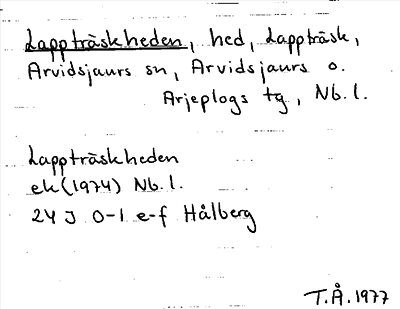 Lappträskheden, hed, Lappträsk,
Arvidsjaurs sn, Arvidsjaurs o.
Arjeplogs tg, Nb.l.
Lappträskheden
ek (1974) Nb.l.
24 J 0-1 e-f Hålberg
T.Å. 1977